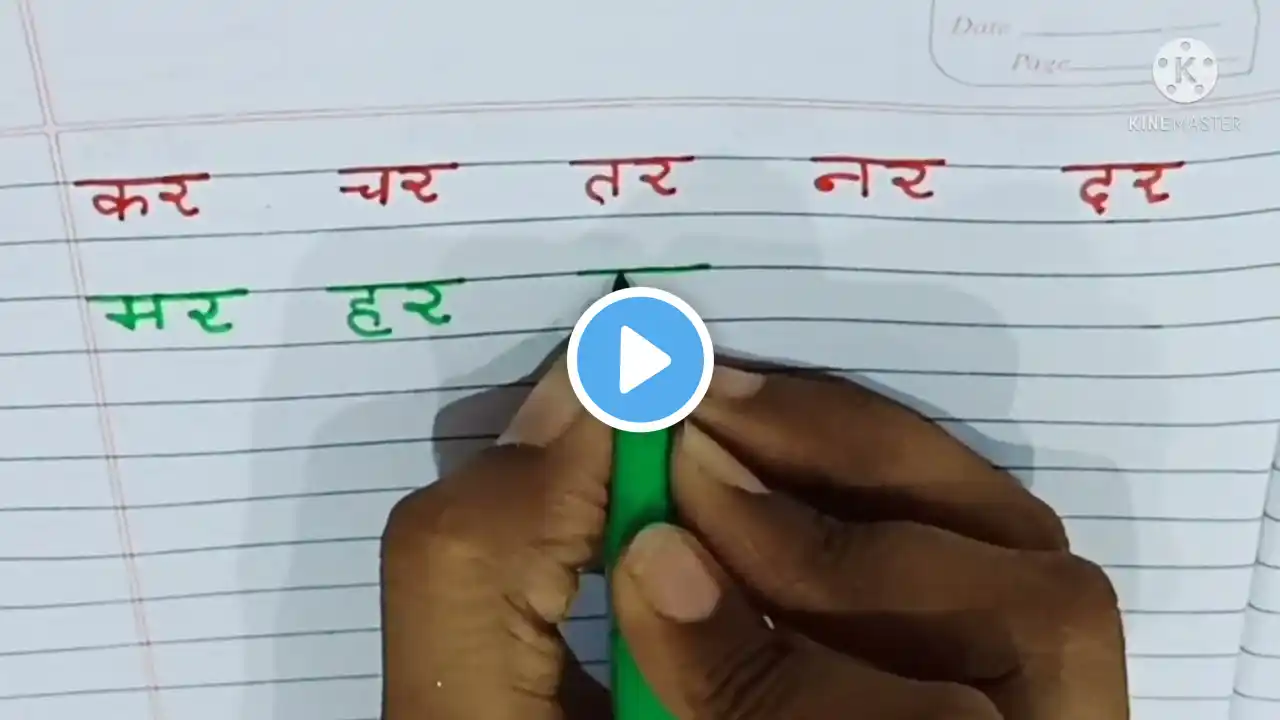 Date
Page
KINEMASTER
कर चर तर नर दर
मर हर